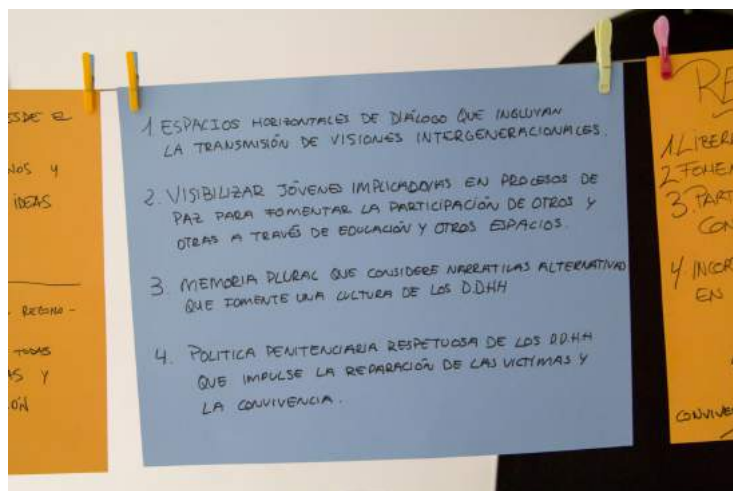 EL
NOS Y
IDEAS
TODAS
AS Y
1 ESPACIOS HORIZONTALES DE DIÁLOGO QUE INCLUYAN
LA TRANSMISIÓN DE VISIONES INTERGENERACIONALES.
2. VISIBILIZAR JÓVENES IMPLICADO/AS EN PROCESOS DE
PAZ PARA FOMENTAR LA PARTICIPACIÓN DE OTROS Y
OTRAS A TRAVÉS DE EDUCACIÓN Y OTROS ESPACIOS.
3. MEMORIA PLURAL QUE CONSIDERE NARRATIVAS ALTERNATIVAS
QUE FOMENTE UNA CULTURA DE LOS D.D.H.H
4. POLITICA PENITENCIARIA RESPETUOSA DE LOS D.D.H.H
QUE IMPULSE LA REPARACIÓN DE LAS VICTIMAS Y
LA CONVIVENCIA.
RE
1. LIBER
2. FOMEN
3. PART
CON
4. INCOR
EN
CONVIVE